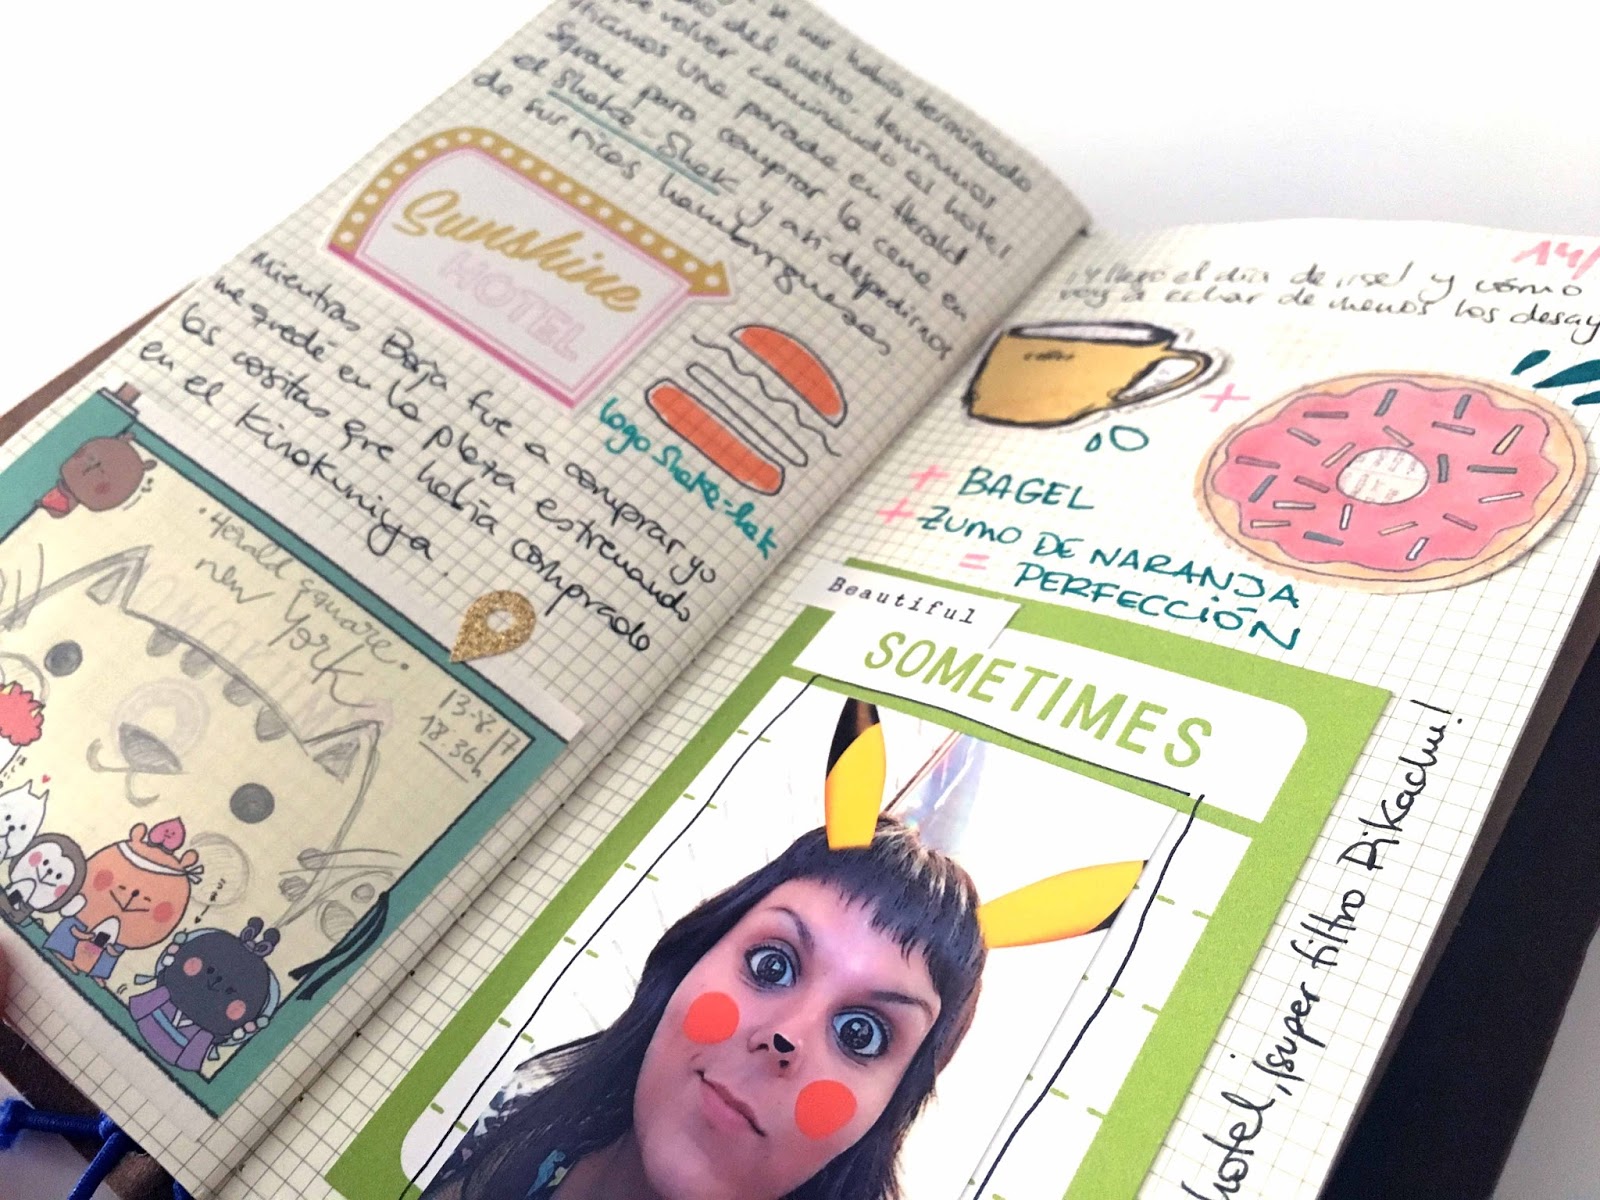 había terminado
del metro, teníamos
volver caminando al hotel
hicimos una parada en Herald
Square para comprar la cena en
el Shake-Shak y así despedirnos
de sus ricas hamburguesas
Sunshine
HOTEL
logo Shake-shak
Mientras Borja fue a comprar yo
me quedé en la plaza estrenando
las cositas que había comprado
en el Kinokuniya.
·Herald Square·
new York
13-8-17
18.36h
14/
¡Y llegó el día de irse! y cómo
voy a echar de menos los desay
coffee
+
+ BAGEL
+ ZUMO DE NARANJA
= PERFECCIÓN
Beautiful
SOMETIMES
hotel, ¡super filtro Pikachu!